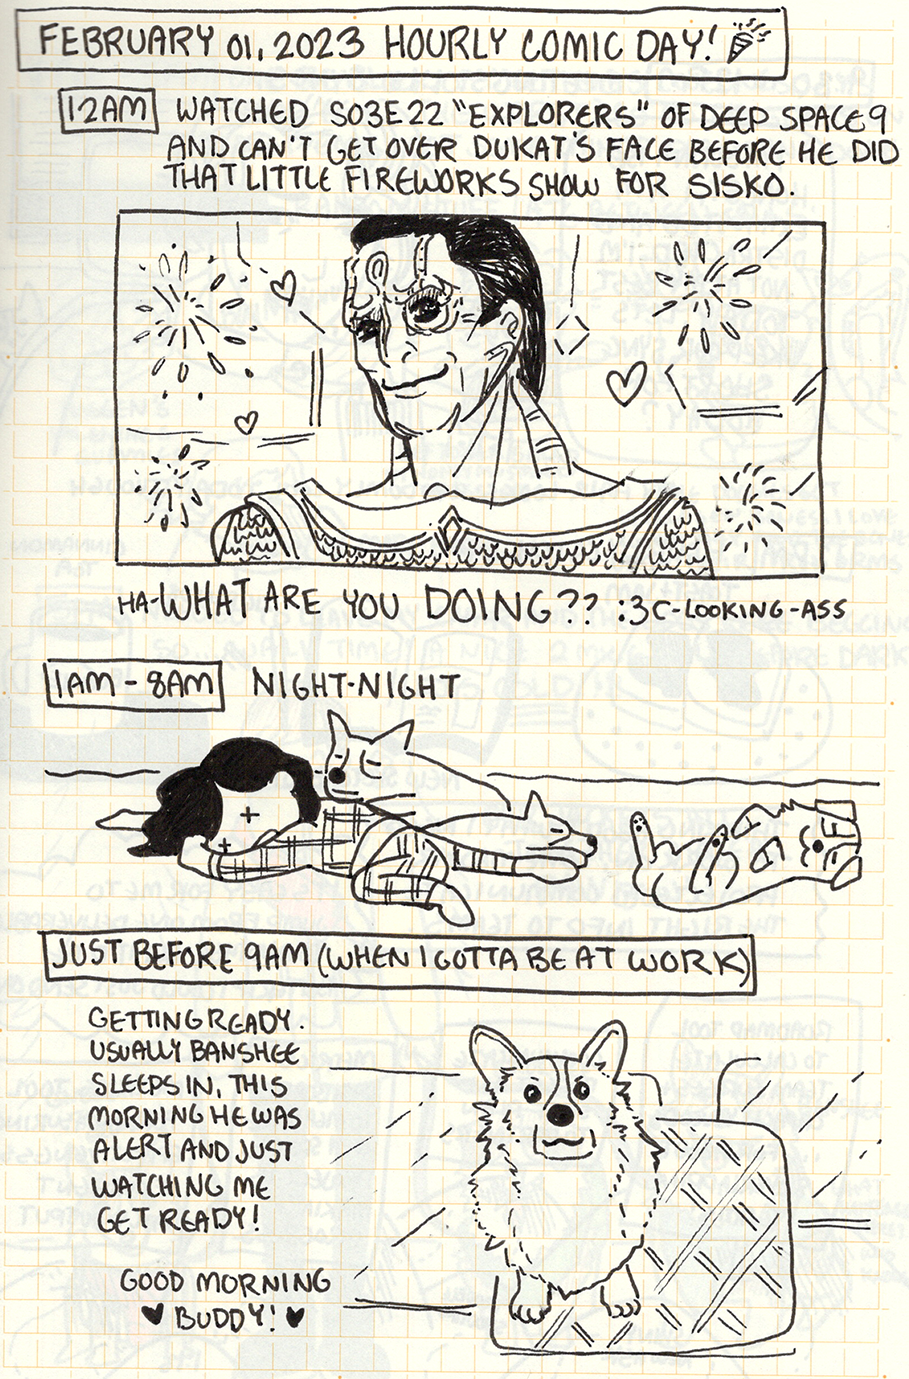 FEBRUARY 01, 2023 HOURLY COMIC DAY!
12AM WATCHED S03E22 "EXPLORERS" OF DEEP SPACE 9
AND CAN'T GET OVER DUKAT'S FACE BEFORE HE DID
THAT LITTLE FIREWORKS SHOW FOR SISKO.
HA-WHAT ARE YOU DOING?? :3C-LOOKING-ASS
1AM - 8AM NIGHT-NIGHT
JUST BEFORE 9AM (WHEN I GOTTA BE AT WORK)
GETTING READY.
USUALLY BANSHEE
SLEEPS IN, THIS
MORNING HE WAS
ALERT AND JUST
WATCHING ME
GET READY!
GOOD MORNING
♥ BUDDY! ♥